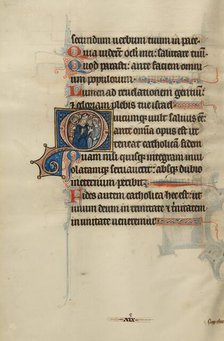 secundum uerbum tuum in pace
Quia uiderunt oculi mei: salutare tuum
Quod parasti: ante faciem omni
um populorum
Lumen ad reuelationem gentium
et gloriam plebis tue israel
Quicunque uult saluus esse
ante omnia opus est ut
teneat catholicam fidem
Quam nisi quisque integram inui
olatamque seruauerit: absque dubio
in eternum peribit
Fides autem catholica hec est: ut
unum deum in trinitate et trinitatem
in unitate ueneremur